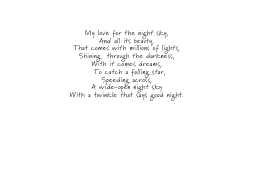 My love for the night sky,
And all its beauty.
That comes with millions of lights,
Shining, through the darkness,
With it comes dreams,
To catch a falling star,
Speeding across,
A wide-open night sky
With a twinkle that says good night.